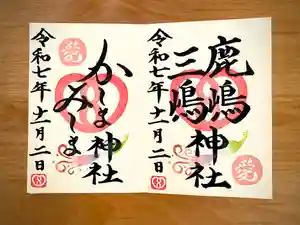 鹿嶋
三嶋神社
令和七年十一月二日
かしま神社
みしま
令和七年十一月二日